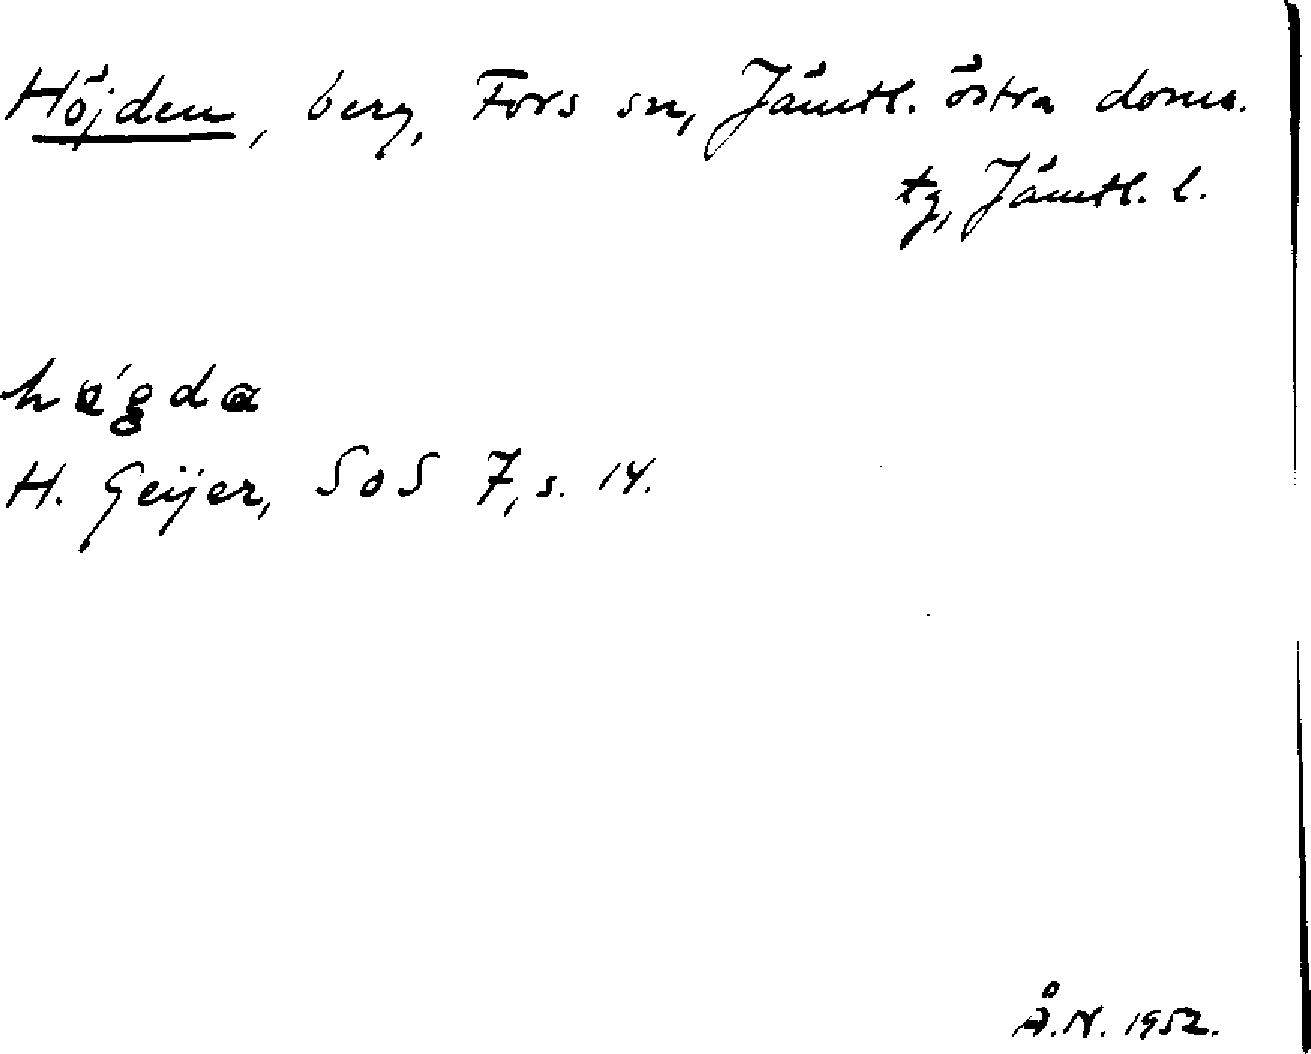 Höjden, berg, Fors sn, Jämtl. östra doms.
tg, Jämtl. l.
H. Geijer, SoS 7, s. 14.
Å.N. 1952.